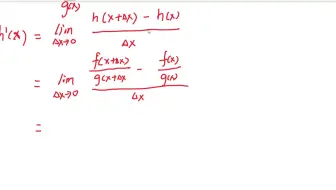 g(x)
h'(x) = lim Δx→0 h(x+Δx) - h(x) / Δx
= lim Δx→0 f(x+Δx)/g(x+Δx - f(x)/g(x) / Δx
=